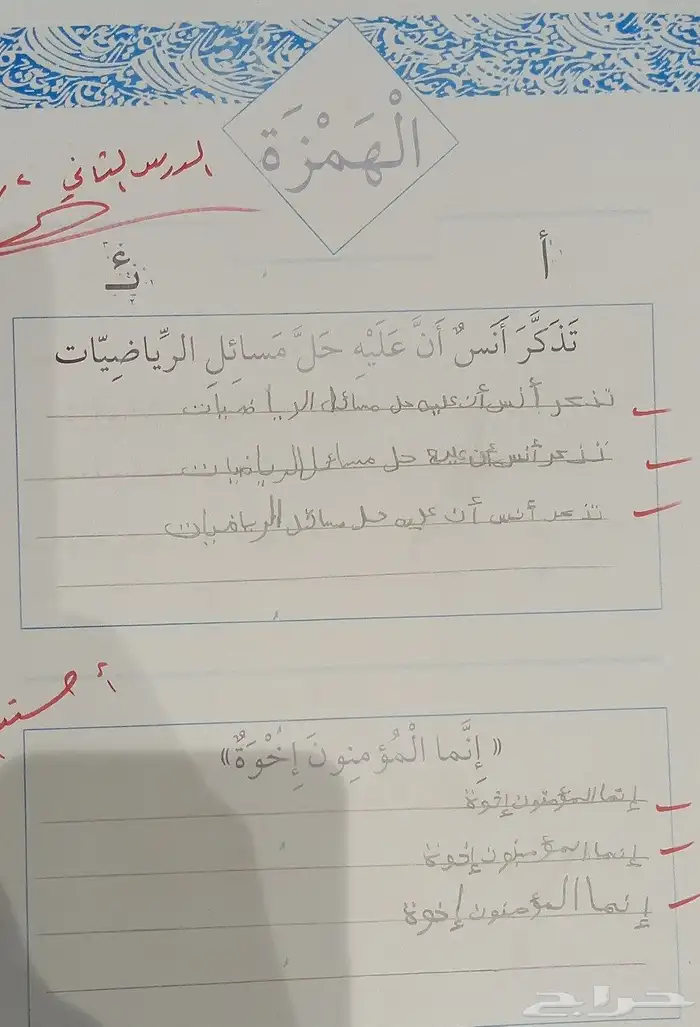 الْهَمْزَة
الدرس الثاني
أ ئ
تَذَكَّرَ أَنَسٌ أَنَّ عَلَيْهِ حَلَّ مَسائِلِ الرِّياضِيّات
تذكر أنس أن عليه حل مسائل الرياضيات
تذكر أنس أن عليه حل مسائل الرياضيات
تذكر أنس أن عليه حل مسائل الرياضيات
أحسنت
« إِنَّما الْمُؤمِنونَ إِخْوَةٌ»
إنما المؤمنون إخوة
إنما المؤمنون إخوة
إنما المؤمنون إخوة
حراج